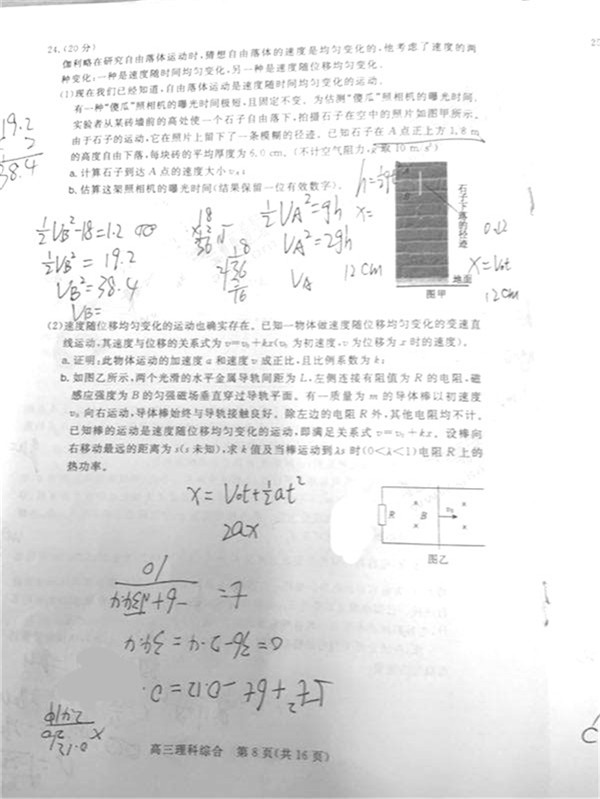 24.(20分)
伽利略在研究自由落体运动时,猜想自由落体的速度是均匀变化的,他考虑了速度的两
种变化:一种是速度随时间均匀变化,另一种是速度随位移均匀变化.
(1)现在我们已经知道,自由落体运动是速度随时间均匀变化的运动.
有一种“傻瓜”照相机的曝光时间极短,且固定不变。为估测“傻瓜”照相机的曝光时间,
实验者从某砖墙前的高处使一个石子自由落下,拍摄石子在空中的照片如图甲所示。
由于石子的运动,它在照片上留下了一条模糊的径迹。已知石子在A点正上方1.8 m
的高度自由下落,每块砖的平均厚度为6.0 cm。(不计空气阻力,g取10 m/s²)
a.计算石子到达A点的速度大小
b.估算这架照相机的曝光时间(结果保留一位有效数字)。
19.2
38.4
½VB²-18=1.2
½VB²=19.2
VB²=38.4
VB=
18
x 2
36
½VA²=gh
VA²=2gh
VA
x=
12cm
A
B
石子下落的径迹
地面
图甲
0.12
X=Vot
12cm
(2)速度随位移均匀变化的运动也确实存在。已知一物体做速度随位移均匀变化的变速直
线运动,其速度与位移的关系式为v=v₀+kx(v₀为初速度,v为位移为x时的速度)。
a.证明:此物体运动的加速度a和速度v成正比,且比例系数为k;
b.如图乙所示,两个光滑的水平金属导轨间距为L,左侧连接有阻值为R的电阻,磁
感应强度为B的匀强磁场垂直穿过导轨平面。有一质量为m的导体棒以初速度
v₀向右运动,导体棒始终与导轨接触良好。除左边的电阻R外,其他电阻均不计。
已知棒的运动是速度随位移均匀变化的运动,即满足关系式v=v₀+kx。设棒向
右移动最远的距离为s(s未知),求k值及当棒运动到λs时(0<λ<1)电阻R上的
热功率。
X=Vot+½at²
2ax
R
B
v₀
图乙
高三理科综合 第8页(共16页)